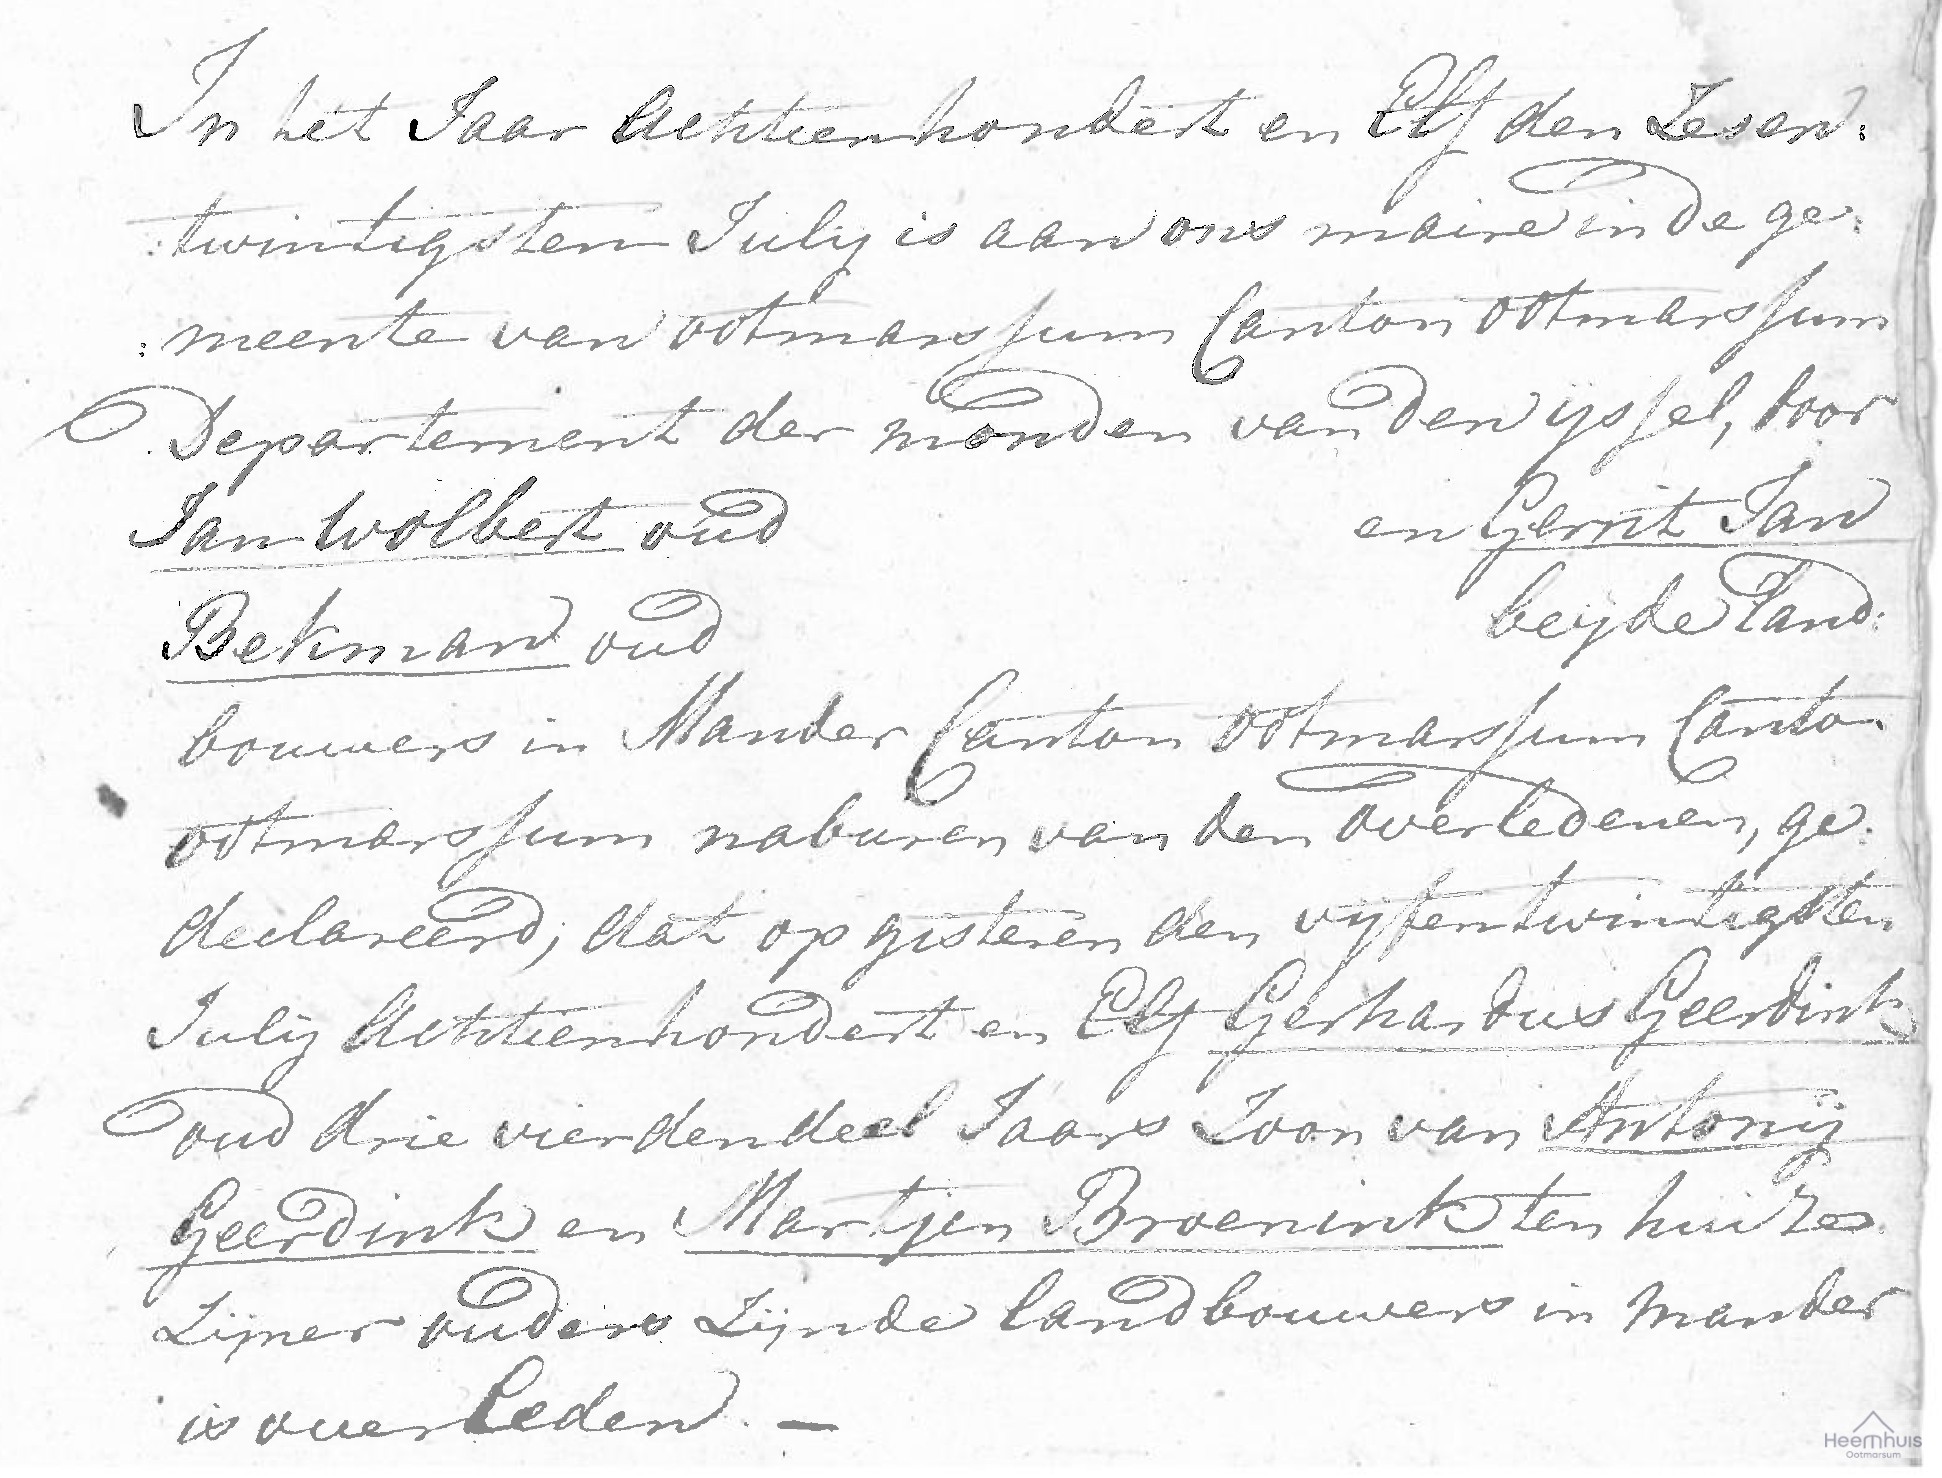 In het Jaar Achttienhondert en Elf den Zesen:
:twintigsten July is aan ons maire in de ge:
:meente van ootmarssum Canton ootmarssum
Departement der monden van den ijssel, door
Jan Wolbert oud en Gerrit Jan
Bekman oud beijde land:
bouwers in Mander Canton ootmarssum Canto
ootmarssum naburen van den overledenen, ge:
declareerd, dat op gisteren den vijfentwintigsten
July Achttienhondert en Elf Gerhardus Geerdink
oud drie vierdendeel Jaars Zoon van Antonij
Geerdink en Martjen Broenink ten huize
Zijner ouders Zijnde landbouwers in Mander
is overleden. —
Heemhuis
Ootmarsum